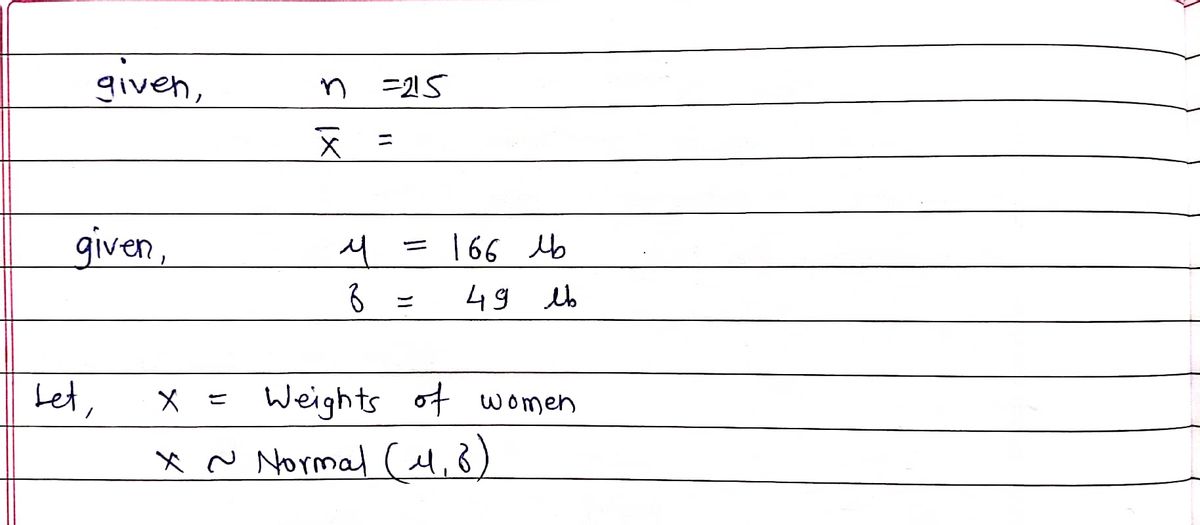 given, n =215
x̄ =
given, μ = 166 lb
σ = 49 lb
Let, x = Weights of women
x ~ Normal (μ, σ)